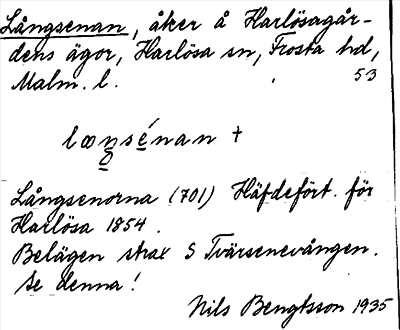 Långsenan, åker å Harlösagår-
dens ägor, Harlösa sn, Frosta hd,
Malm. l. 53
Långsenorna (701) Häfdefört. för
Harlösa 1854.
Belägen strax S Tvärsenevången.
Se denna!
Nils Bengtsson 1935